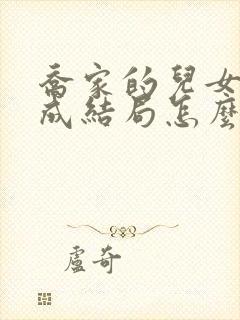 喬家的兒女
成結局怎麼
盧奇